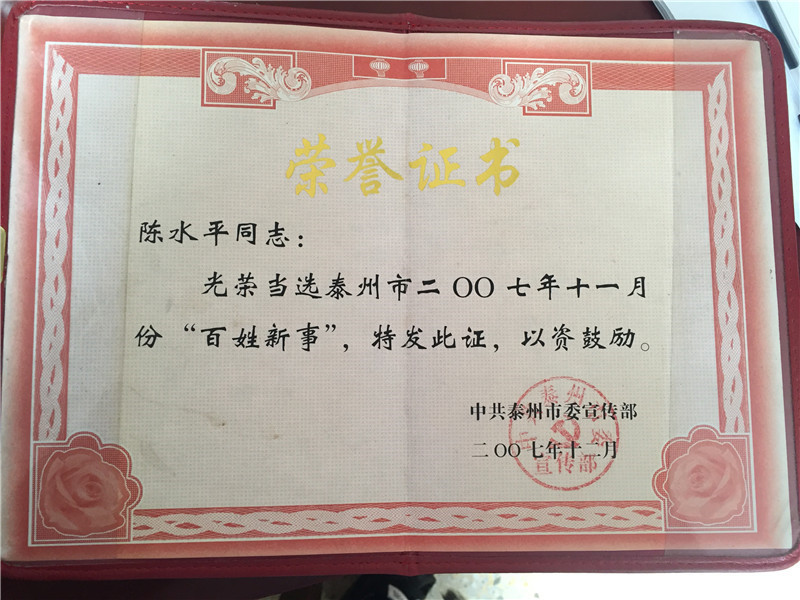 荣誉证书
陈水平同志：
光荣当选泰州市二〇〇七年十一月
份“百姓新事”，特发此证，以资鼓励。
中共泰州市委宣传部
二〇〇七年十二月
中共泰州市委
宣传部